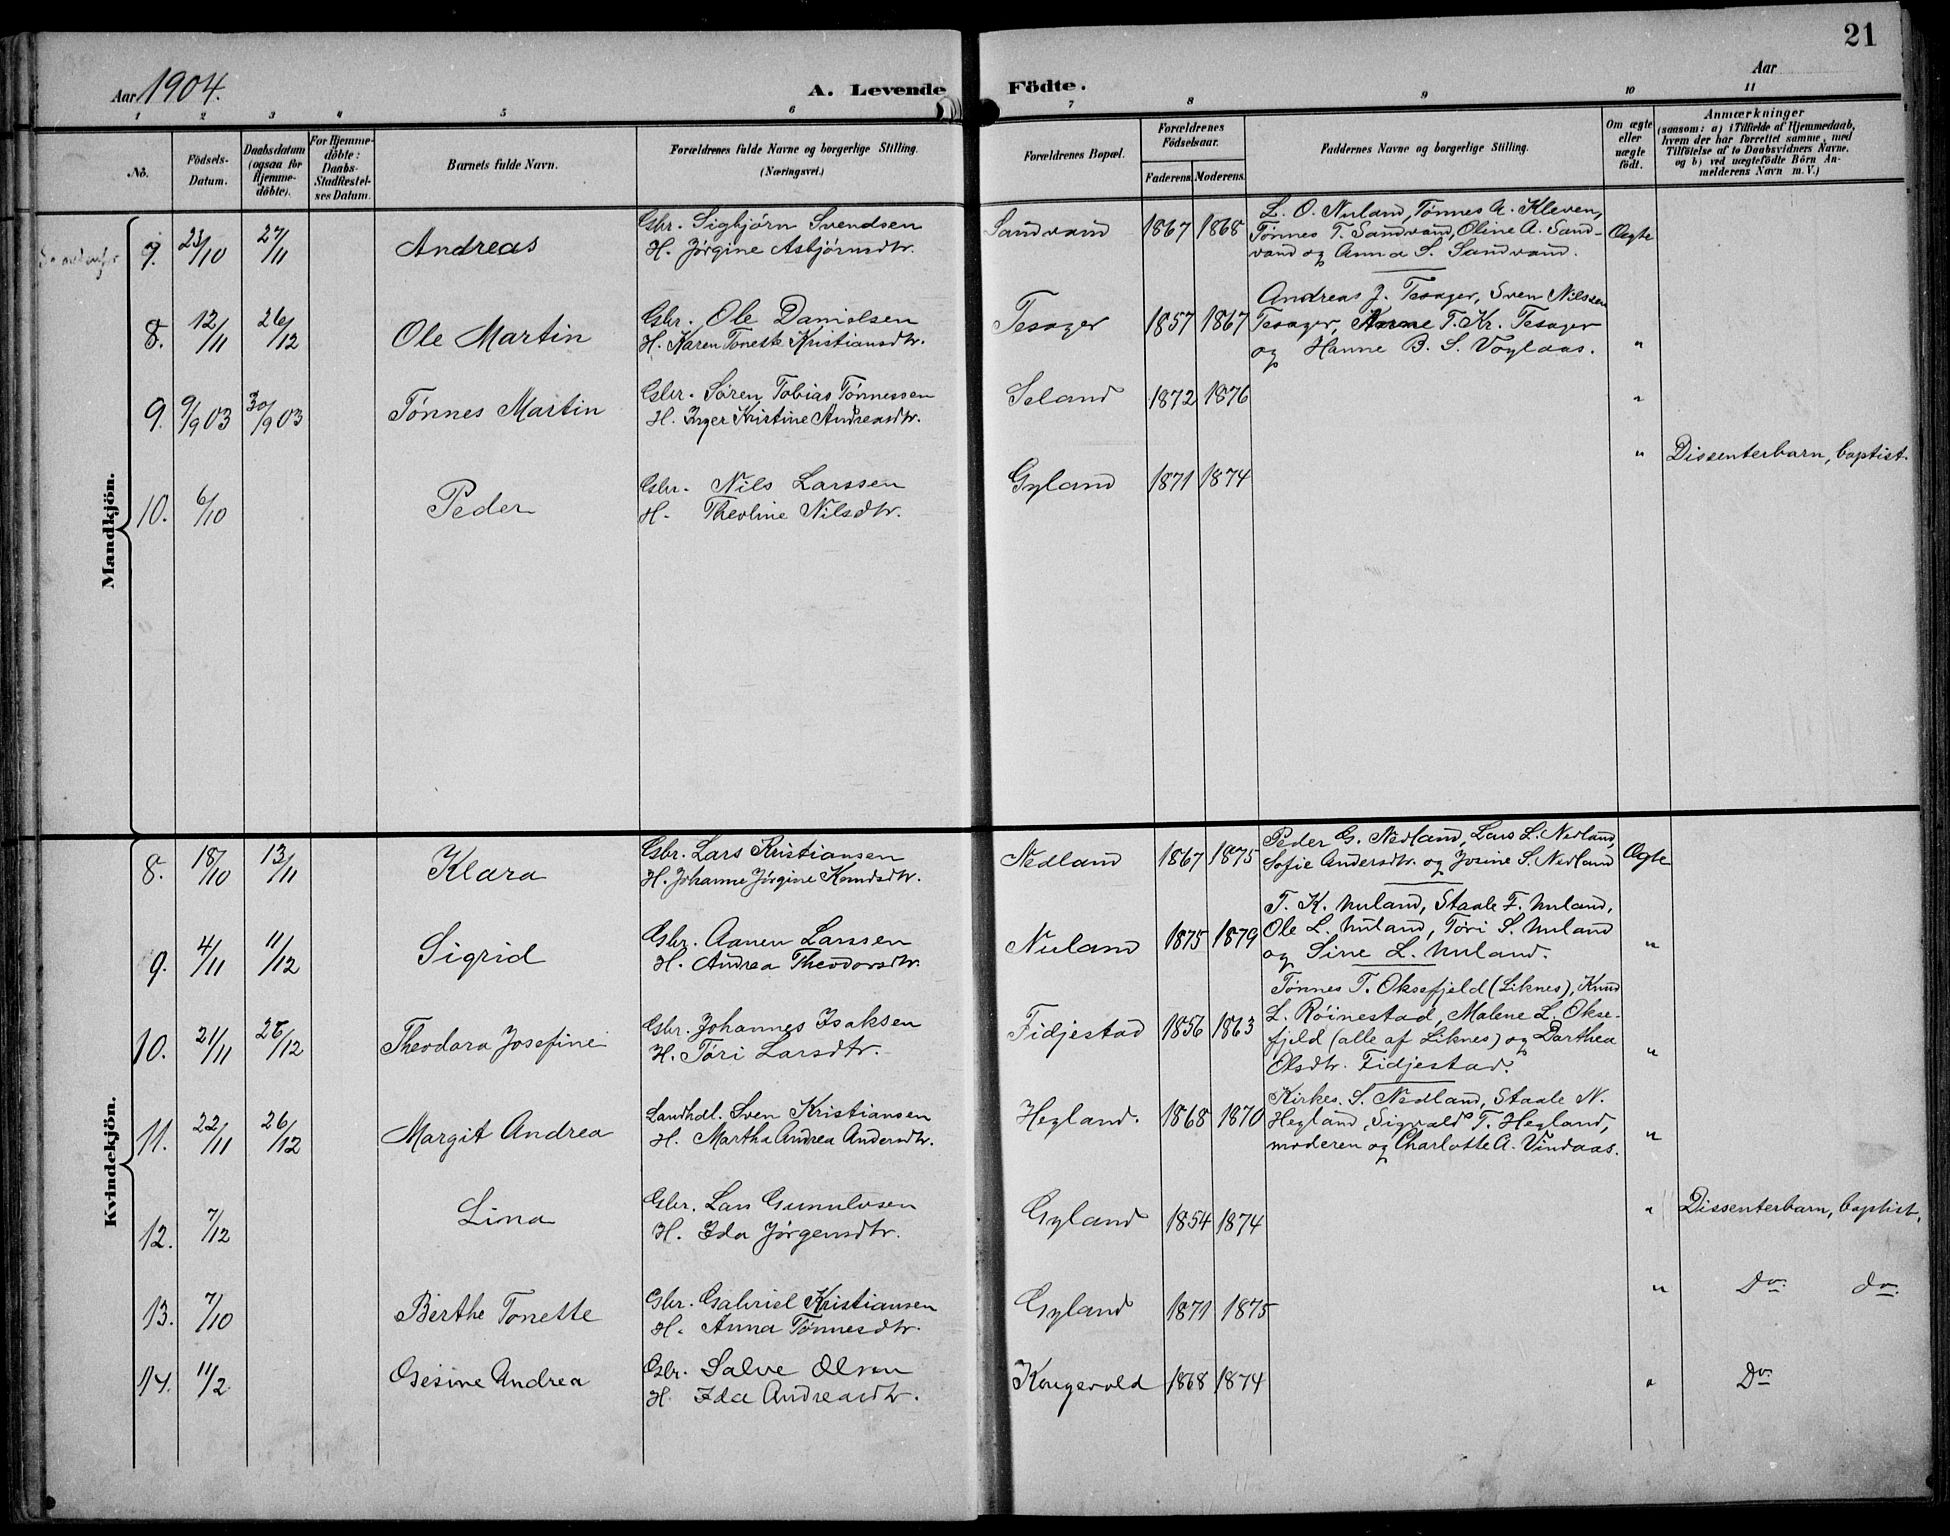 21
Aar 1904.
A. Levende Födte.
Aar
1 2 3 4 5 6 7 8 9 10 11
No.
Födsels-Datum.
Daabsdatum (ogsaa for Hjemme-döbte).
For Hjemme-döbte: Daabs-Stadfæstel-ses Datum.
Barnets fulde Navn.
Forældrenes fulde Navne og borgerlige Stilling.
(Næringsvei.)
Forældrenes Bopæl.
Forældrenes Födselsaar.
Faderens. Moderens.
Faddernes Navne og borgerlige Stilling.
Om ægte eller uægte födt.
Anmærkninger
(saasom: a) i Tilfælde af Hjemmedaab,
hvem der har forrettet samme, med
Tilföielse af to Daabsvidners Navne,
og b) ved uægtefödte Börn An-
melderens Navn m. V.)
Mandkjön.
7. 23/10 27/11 Andreas
Gbr. Sigbjörn Svendsen
H. Jörgine Asbjörnsdtr.
Sandvand 1867 1868
L. O. Nuland, Tønnes A. Kleven,
Tønnes T. Sandvand, Oline A. Sand-
vand og Anna S. Sandvand.
Ægte
8. 12/11 26/12 Ole Martin
Gbr. Ole Danielsen
H. Karen Tonette Kristiansdtr.
Tesager 1857 1867
Andreas J. Tesager, Sven Nilssen
Tesager, T. Kr. Tesager
og Hanne B. S. Voglaas.
"
9. 9/9 03 30/9 03 Tönnes Martin
Gbr. Sören Tobias Tönnessen
H. Inger Kristine Andreasdtr.
Seland 1872 1876
"
10. 6/10 Peder
Gbr. Nils Larssen
H. Theoline Nilsdtr.
Gyland 1871 1874
" Dissenterbarn, baptist.
Kvindekjön.
8. 18/10 13/11 Klara
Gbr. Lars Kristiansen
H. Johanne Jörgine Knudsdtr.
Nedland 1867 1875
Peder G. Nedland, Lars L. Nedland,
Sofie Andersdtr. og Josine S. Nedland
Ægte
9. 4/11 11/12 Sigrid
Gbr. Aanen Larssen
H. Andrea Theodorsdtr.
Nuland 1875 1879
T. K. Nuland, Staale F. Nuland,
Ole L. Nuland, Töri S. Nuland
og Sine L. Nuland.
"
10. 21/11 26/12 Theodora Josefine
Gbr. Johannes Isaksen
H. Töri Larsdtr.
Fidjestad 1856 1863
Tönnes T. Oksefjeld (Liknes), Knud
L. Röinestad, Malene L. Okse-
fjeld (alle af Liknes) og Darthea
Olsdtr. Fidjestad.
"
11. 22/11 26/12 Margit Andrea
Landhdl. Sven Kristiansen
H. Martha Andrea Andersdtr.
Hegland. 1868 1870
Kirkes. S. Nedland, Staale N.
Hegland, Sigvald T. Hegland,
moderen og Charlotte A. Vindaas.
"
12. 7/12 Lina
Gbr. Lars Gunulvsen
H. Ida Jörgensdtr.
Gyland 1854 1874
" Dissenterbarn, baptist.
13. 7/10 Berthe Tonette
Gbr. Gabriel Kristiansen
H. Anna Tönnesdtr.
Gyland 1871 1875
" Do. do.
14. 11/2 Gesine Andrea
Gbr. Salve Olsen
H. Ida Andreasdtr.
Kongevold 1868 1874
" Do.